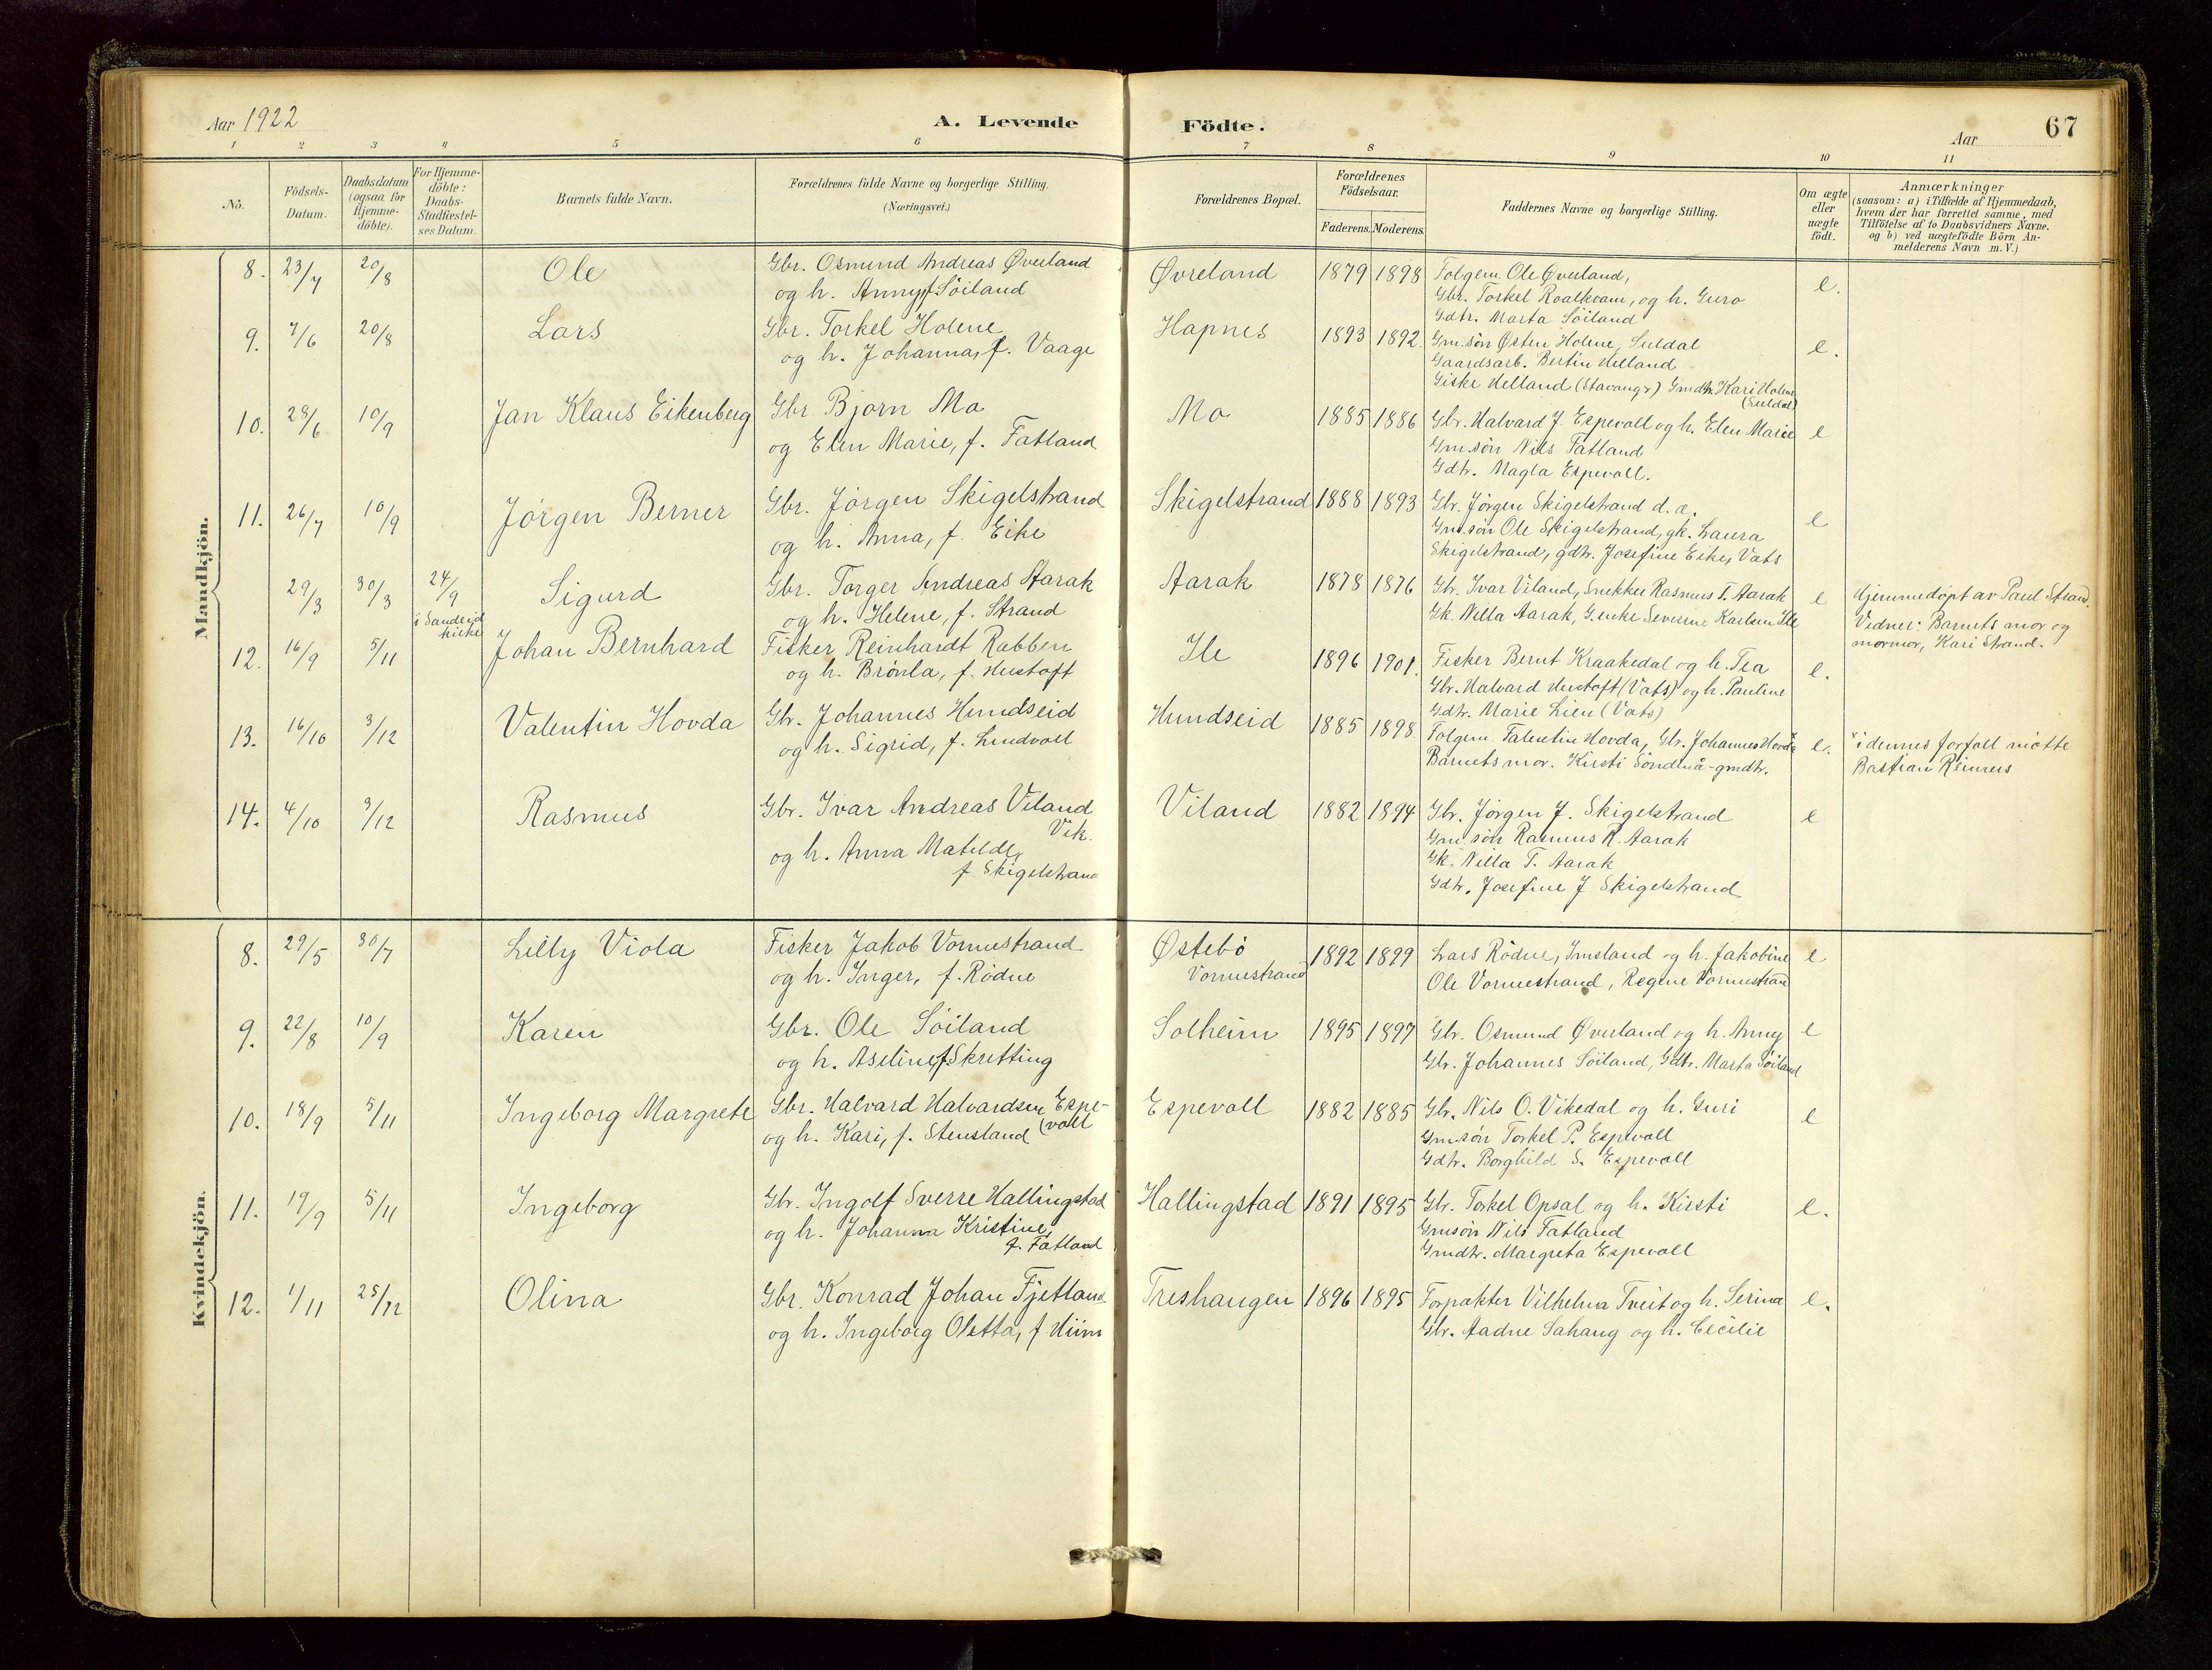 Aar 1922
A. Levende
Födte.
Aar
67
1 2 3 4 5 6 7 8 9 10 11
No.
Födsels-Datum.
Daabsdatum (ogsaa for Hjemme-döbte).
For Hjemme-döbte: Daabs-Stadfæstel-ses Datum.
Barnets fulde Navn.
Forældrenes fulde Navne og borgerlige Stilling.
(Næringsvei.)
Forældrenes Bopæl.
Forældrenes Födselsaar.
Faderens. Moderens.
Faddernes Navne og borgerlige Stilling.
Om ægte eller uægte födt.
Anmærkninger
(saasom: a) i Tilfælde af Hjemmedaab,
hvem der har forrettet samme, med
Tilföielse af to Daabsvidners Navne.
og b) ved uægtefödte Börn An-
melderens Navn m. V.)
Mandkjön.
8. 23/7 20/8 Ole Gbr. Osmund Andreas Øverland Øvreland 1879 1898 Folgem. Ole Øverland, e.
og h. Anny, f. Söiland Gbr. Torkel Roalkvam, og h. Guro
Gdtr. Marta Söiland
9. 7/6 20/8 Lars Gbr. Torkel Holene Hapnes 1893 1892. Gm.sön Østen Holene, Suldal e.
og h. Johanna, f. Vaage Gaardsarb. Bertin Helland
Giske Helland (Stavangr) Gmdtr. Kari Holene
(Suldal)
10. 28/6 10/9 Jan Klaus Eikenberg Gbr Bjorn Mo Mo 1885 1886 Gbr. Halvard J. Espevoll og h. Elen Marie e
og Elen Marie, f. Fatland Gm.sön Nils Fatland
Gdtr. Magla Espevoll.
11. 26/7 10/9 Jörgen Berner Gbr. Jörgen Skigelstrand Skigelstrand 1888 1893 Gbr. Jörgen Skigelstrand d. æ. e
og h. Anna, f. Eike Gm.sön Ole Skigelstrand, gk. Laura
Skigelstrand, gdtr. Josefine Eike, Vats
29/3 30/3 24/9 Sigurd Gbr. Torger Andreas Aarak Aarak 1878 1876 Gbr. Ivar Viland, Snekker Rasmus T. Aarak e Hjemmedöpt av Paul Strand.
i Sandeid kirke og h. Helene, f. Strand Gk. Nella Aarak, G.enke Severine Karlsen Ile Vidner: Barnets mor og
mormor, Kari Strand.
12. 16/9 5/11 Johan Bernhard Fisker Reinhardt Rabben Ile 1896 1901. Fisker Bernt Kraakedal og h. Tea e.
og h. Brönla, f. Hustoft Gbr. Halvard Hustoft (Vats) og h. Pauline
Gdtr. Marie Lien (Vats)
13. 16/10 3/12 Valentin Hovda Gbr. Johannes Hundseid Hundseid 1885 1898. Folgem. Falentin Hovda, Gbr. Johannes Hovda x e. x i dennes forfall mötte
og h. Sigrid, f. Lindvoll Barnets mor. Kirsti Söndenå - gmdtr. Bastian Reimers
14. 4/10 3/12 Rasmus Gbr. Ivar Andreas Viland Viland 1882 1894 Gbr. Jörgen J. Skigelstrand e
Vik. Gm.sön Rasmus R. Aarak
og h. Anna Matilde, Gk. Nella T. Aarak
f. Skigelstrand Gdtr. Josefine J Skigelstrand
Kvindekjön.
8. 29/5 30/7 Lilly Viola Fisker Jakob Vormestrand Østebö 1892 1899 Lars Rödne, Imsland og h. Jakobine e
og h. Inger, f. Rödne Vormestrand Ole Vormestrand, Regine Vormestrand
9. 22/8 10/9 Karen Gbr. Ole Söiland Solheim 1895 1897 Gbr. Osmund Øverland og h. Anny e
og h. Aseline, f. Skretting Gbr. Johannes Söiland, Gdtr. Marta Söiland
10. 18/9 5/11 Ingeborg Margrete Gbr. Halvard Halvardsen Espe- Espevoll 1882 1885 Gbr. Nils O. Vikedal og h. Guri e
og h. Kari, f. Stensland (voll Gm.sön Torkel P. Espevoll
Gdtr. Borghild S. Espevoll
11. 19/9 5/11 Ingeborg Gbr. Ingolf Sverre Hallingstad Hallingstad 1891 1895 Gbr. Torkel Opsal og h. Kirsti e.
og h. Johanna Kristine, Gmsön Nils Fatland
f. Fatland Gmdtr. Margreta Espevoll
12. 1/11 25/12 Olina Gbr. Konrad Johan Fjetland Treshaugen 1896 1895 Forpakter Vilhelm Tveit og h. Serina e.
og h. Ingeborg Oletta, f Hiim Gbr. Aadne Sahaug og h. Cecilie